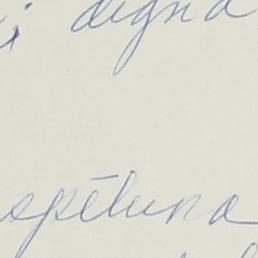 ; digna
spēluna